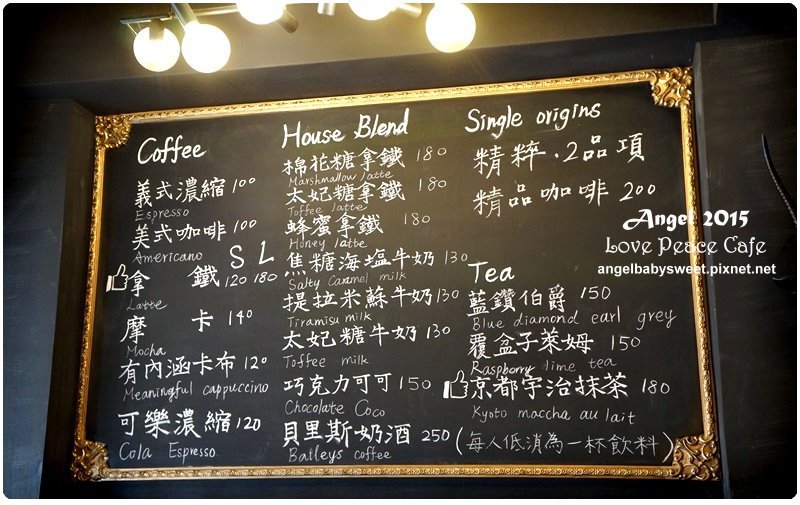 Coffee
義式濃縮 100
Espresso
美式咖啡 100
Americano S L
拿鐵 120 180
Latte
摩卡 140
Mocha
有內涵卡布 120
Meaningful cappuccino
可樂濃縮 120
Cola Espresso
House Blend
棉花糖拿鐵 180
Marshmallow latte
太妃糖拿鐵 180
Toffee latte
蜂蜜拿鐵 180
Honey latte
焦糖海塩牛奶 130
Salty Caramel milk
提拉米蘇牛奶 130
Tiramisu milk
太妃糖牛奶 130
Toffee milk
巧克力可可 150
Chocolate Coco
貝里斯奶酒 250
Baileys coffee
Single origins
精粹.2品項
精品咖啡 200
Tea
藍鑽伯爵 150
Blue diamond earl grey
覆盒子萊姆 150
Raspberry lime tea
京都宇治抹茶 180
Kyoto maccha au lait
(每人低消為一杯飲料)
Angel 2015
Love Peace Cafe
angelbabysweet.pixnet.net